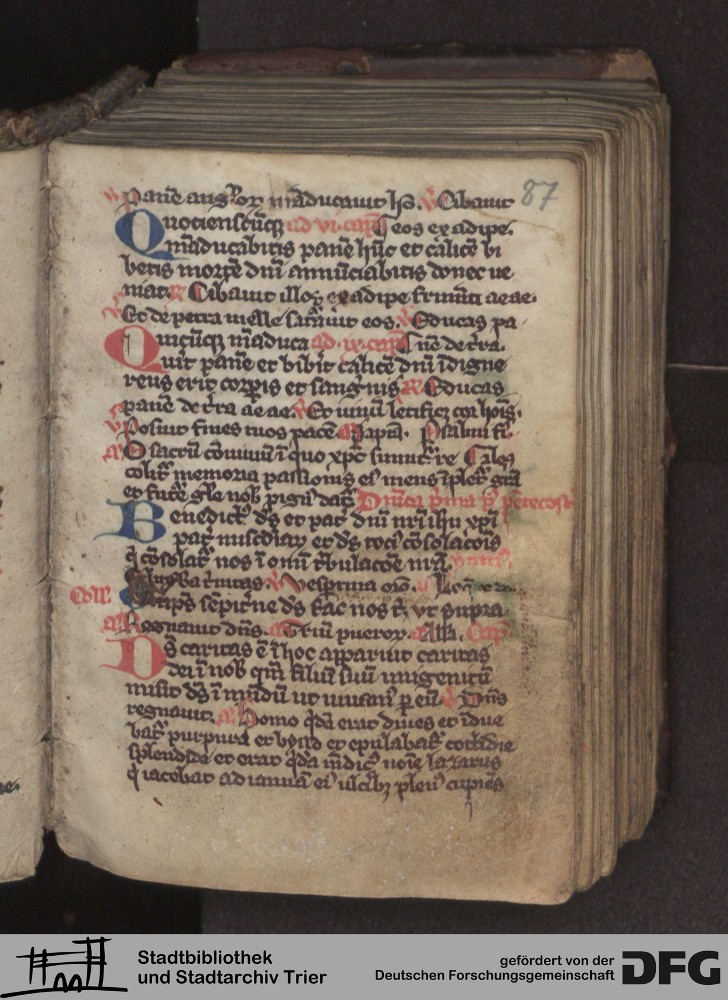 87
Panē angloꝝ māducauit hō. V Cibauit
Quociensc̄ūqꝫ ad vi. cap̄ eos ex adipe.
māducabitis panē hūc et calicē bi
betis mortē dn̄i annūciabitis donec ue
niat. R Cibauit illos ex adipe frumēti aeae.
V Et de petra melle saťauit eos. V Educas pa
Quicūqꝫ māduca ad ix. cap̄ nē de tʳra.
uit panē et bibit calicē dn̄i īdigne
reus erit corꝑis et sanguīs R Educas
panē de tʳra aeae. V Et uinū letificꝫ cor hoīs.
V Posuit fines tuos pacē
O sacrū cōuiuiū ī quo xpc̄ sumit᷑
colit᷑ memoria passionis eiꝰ mens īplet᷑ grā
et futē gl̄e nob̄ pignꝰ dat᷑ Dn̄ica p̄ma p̄ pentecost
Benedictꝰ ds̄ et pat̄ dn̄i nr̄i ihu xp̄i
pat̄ mīsc̄diaꝝ et ds̄ tociꝰ cōsolac̄ois
q̇ cōsolat᷑ nos ī om̄i tʳbulac̄oe nr̄a.
V Vespertina oīo.
Coll. Om̄ps sēpit̄ne ds̄ fac nos tˡ vt supra
Regnauit dn̄s. a Triū pueroꝝ. Allā. Cap̄
Ds̄ caritas ē ī hoc apparuit caritas
dei ī nob̄ qm̄ filiū suū unigenitū
misit ds̄ ī mūdū ut uiuamꝰ ꝑ eū V Dn̄s
regnauit. a Homo q̇dā erat diues et īdue
bat᷑ purpura et bysso et epulabat᷑ cottidie
splendide et erat q̇dā mēdicꝰ noīe lazarus
q̇ iacebat ad ianuā eiꝰ ulc̄ibꝫ plenꝰ cupiēs
Stadtbibliothek
und Stadtarchiv Trier
gefördert von der
Deutschen Forschungsgemeinschaft
DFG